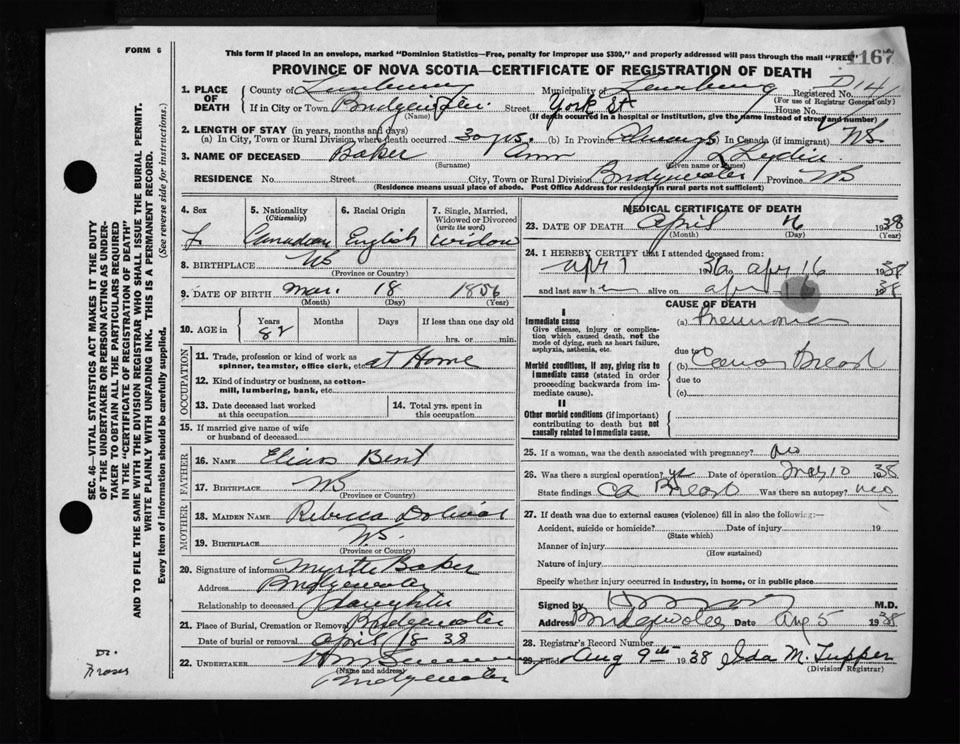 FORM 6
This form if placed in an envelope, marked "Dominion Statistics—Free, penalty for improper use $300," and properly addressed will pass through the mail "FREE"
1167
PROVINCE OF NOVA SCOTIA—CERTIFICATE OF REGISTRATION OF DEATH
1. PLACE OF DEATH
County of Lunenburg Municipality of Lunenburg Registered No.
(For use of Registrar General only)
If in City or Town Bridgewater Street York St House No.
(Name) (If death occurred in a hospital or institution, give the name instead of street and number)
2. LENGTH OF STAY (in years, months and days)
(a) In City, Town or Rural Division where death occurred 30 yrs. (b) In Province Always (c) In Canada (if immigrant) NS.
3. NAME OF DECEASED Baker Ann Lydia
(Surname) (Given name or names)
RESIDENCE No. Street City, Town or Rural Division Bridgewater Province NS
(Residence means usual place of abode. Post Office Address for residents in rural parts not sufficient)
4. Sex
f.
5. Nationality
(Citizenship)
Canadian
6. Racial Origin
English
7. Single, Married, Widowed or Divorced
(write the word)
widow
8. BIRTHPLACE NS
(Province or Country)
9. DATE OF BIRTH Mar. 18 1856
(Month) (Day) (Year)
10. AGE in Years Months Days If less than one day old
82 hrs. or min.
OCCUPATION
11. Trade, profession or kind of work as spinner, teamster, office clerk, etc. at Home
12. Kind of industry or business, as cotton-mill, lumbering, bank, etc.
13. Date deceased last worked at this occupation
14. Total yrs. spent in this occupation
15. If married give name of wife or husband of deceased
FATHER
16. NAME Elias Bent
17. BIRTHPLACE NS
(Province or Country)
MOTHER
18. MAIDEN NAME Rebecca
19. BIRTHPLACE N.S.
(Province or Country)
20. Signature of informant Myrtle Baker
Address Bridgewater
Relationship to deceased Daughter
21. Place of Burial, Cremation or Removal Bridgewater
Date of burial or removal April 18 38
22. UNDERTAKER
(Name and address)
Bridgewater
MEDICAL CERTIFICATE OF DEATH
23. DATE OF DEATH April 16 1938
(Month) (Day) (Year)
24. I HEREBY CERTIFY that I attended deceased from:
apr 1 1936 apr 16 1938
and last saw h er alive on apr 16 1938
CAUSE OF DEATH
I
Immediate cause
Give disease, injury or complication which caused death, not the mode of dying, such as heart failure, asphyxia, asthenia, etc.
(a) Pneumonia
due to
Morbid conditions, if any, giving rise to immediate cause (stated in order proceeding backwards from immediate cause).
Cancer Breast
due to
(c)
II
Other morbid conditions (if important) contributing to death but not causally related to immediate cause.
25. If a woman, was the death associated with pregnancy? no
26. Was there a surgical operation? yes Date of operation May 10 1938
State findings Ca Breast Was there an autopsy? no
27. If death was due to external causes (violence) fill in also the following:—
Accident, suicide or homicide? Date of injury 19
(State which)
Manner of injury
(How sustained)
Nature of injury
Specify whether injury occurred in industry, in home, or in public place
Signed by M.D.
Address Bridgewater Date Aug 5 1938
28. Registrar's Record Number
29. Filed Aug 9th 1938 Ida M. Tupper
(Division Registrar)
SEC. 46—VITAL STATISTICS ACT MAKES IT THE DUTY
OF THE UNDERTAKER OR PERSON ACTING AS UNDER-
TAKER TO OBTAIN ALL THE PARTICULARS REQUIRED
IN THE "CERTIFICATE OF REGISTRATION OF DEATH"
AND TO FILE THE SAME WITH THE DIVISION REGISTRAR WHO SHALL ISSUE THE BURIAL PERMIT.
WRITE PLAINLY WITH UNFADING INK. THIS IS A PERMANENT RECORD.
Every item of information should be carefully supplied. (See reverse side for instructions.)
Dr.